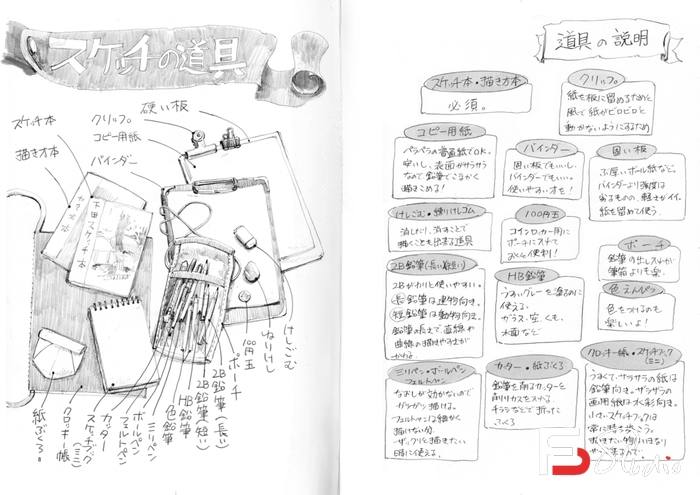 スケッチの道具
硬い板
スケッチ本
クリップ
コピー用紙
描き方本
バインダー
下田スケッチ本
けしごむ
ねりけし
100円玉
ポーチ
2B鉛筆(長い)
2B鉛筆(短い)
HB鉛筆
色鉛筆
ミリペン
ボールペン
フェルトペン
カッター
スケッチブック
(ミニ)
クロッキー帳
紙ぶくろ。
道具の説明
スケッチ本・描き方本
必須。
クリップ。
紙を板に留めるためと
風で紙がピロピロと
動かないようにするため
コピー用紙
ペラペラの普通紙でOK。
安いし、表面がサラサラ
なので鉛筆でこまかく
描きこめる!
バインダー
固い板でもいいし、
バインダーでもいい。
使いやすい方を!
固い板
ぶ厚いボール紙など。
バインダーより強度は
劣るものの、軽さがイイ。
紙を留めて使う。
けしごむ・練りけしゴム
消したり、消すことで
描くことも出来る道具
100円玉
コインロッカー用に
ポーチに入れて
おくと便利!
ポーチ
鉛筆の出し入れが
筆箱よりも楽。
2B鉛筆(長い・短い)
2Bがわりと使いやすい。
長鉛筆は建物向き。
短鉛筆は動物向き。
鉛筆の長さで、直線や
曲線の描きやすさが
かわる。
HB鉛筆
うすいグレーを塗るのに
使える。
ガラス、空、くも、
水面など
色えんぴつ
色をつけるのも
楽しいよ!
ミリペン・ボールペン
フェルトペン
なぎしが効かないので
ガシガシ描ける。
フェルトペンは細かく
描けない分、
ザックリと描きたい
時に使える。
カッター・紙ぶくろ
鉛筆を削るカッターと
削りカスを入れる。
チラシなどで折って
つくる
クロッキー帳・スケッチブック
(ミニ)
うすくて、サラサラの紙は
鉛筆向き。ザラザラの
画用紙は水彩向き。
小さいスケッチブックは
常に持ち歩こう。